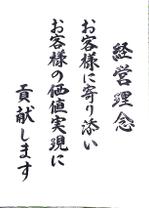 経営理念
お客様に寄り添い
お客様の価値実現に
貢献します